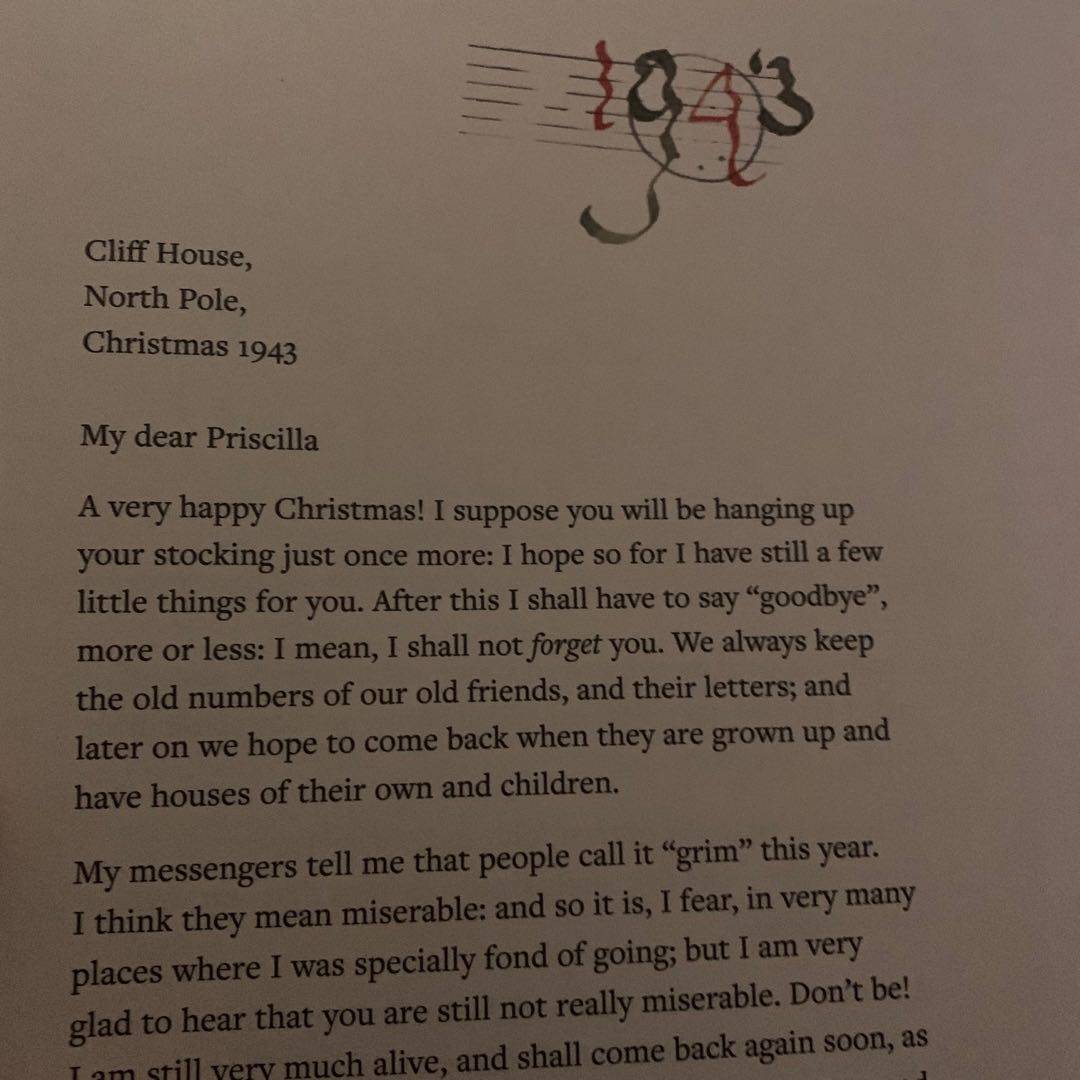 1943
Cliff House,
North Pole,
Christmas 1943
My dear Priscilla
A very happy Christmas! I suppose you will be hanging up
your stocking just once more: I hope so for I have still a few
little things for you. After this I shall have to say “goodbye”,
more or less: I mean, I shall not forget you. We always keep
the old numbers of our old friends, and their letters; and
later on we hope to come back when they are grown up and
have houses of their own and children.
My messengers tell me that people call it “grim” this year.
I think they mean miserable: and so it is, I fear, in very many
places where I was specially fond of going; but I am very
glad to hear that you are still not really miserable. Don’t be!
I am still very much alive, and shall come back again soon, as